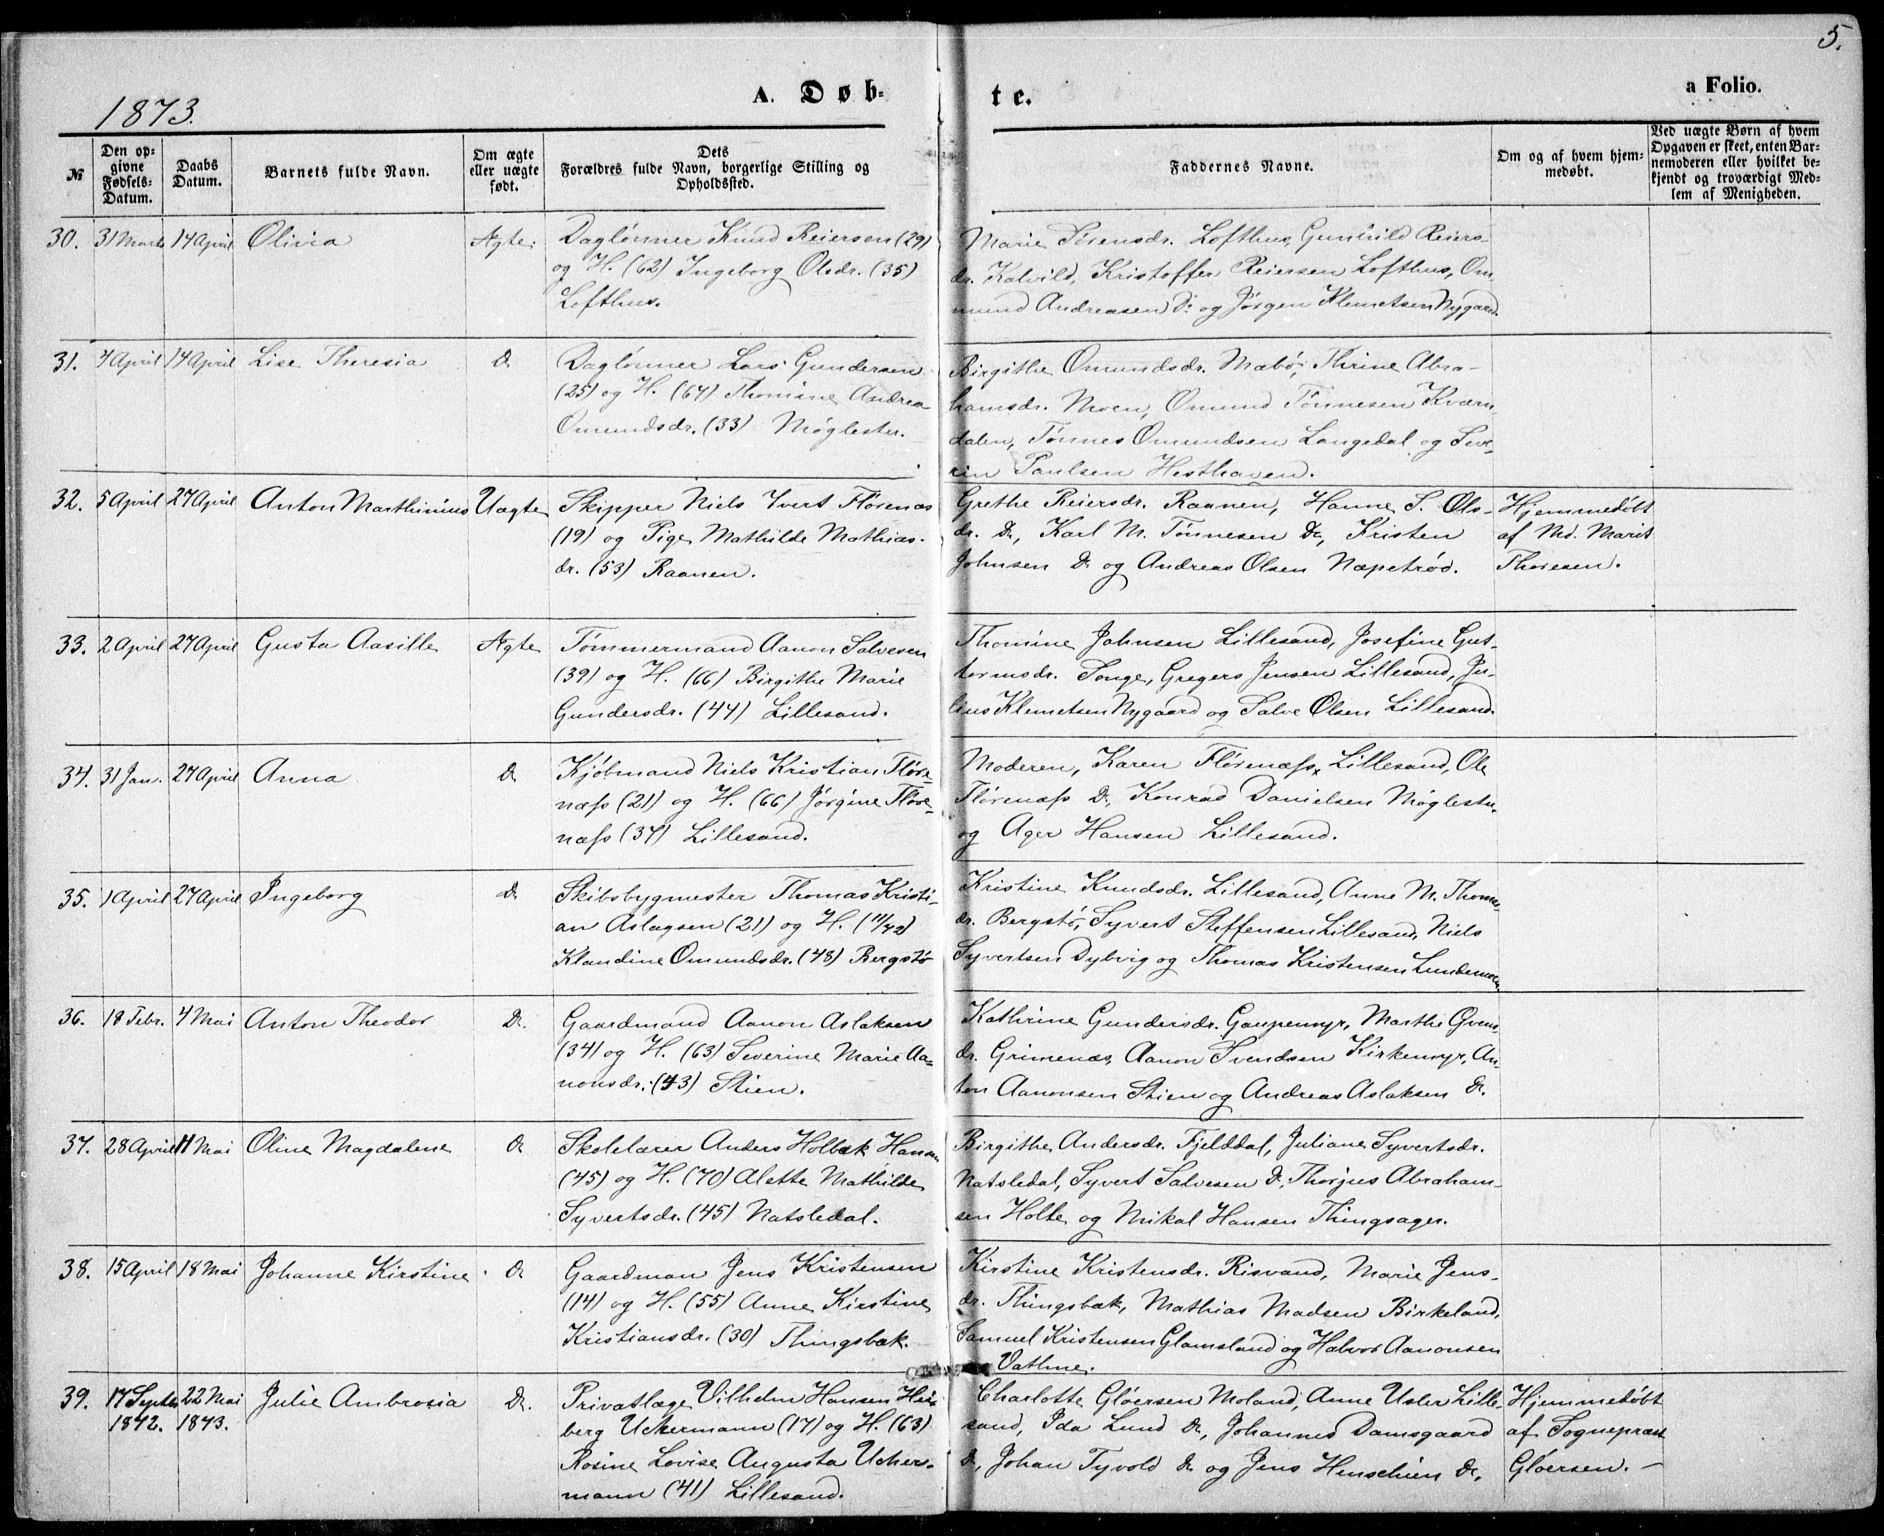 5.
1873.
A. Døb-
te.
a Folio.
№
Den op-
givne
Fødsels-
Datum.
Daabs
Datum.
Barnets fulde Navn.
Om ægte
eller uægte
født.
Dets
Forældres fulde Navn, borgerlige Stilling og
Opholdssted.
Faddernes Navne.
Om og af hvem hjem-
medøbt.
Ved uægte Børn af hvem
Opgaven er skeet, enten Bar-
nemoderen eller hvilket be-
kjendt og troværdigt Med-
lem af Menigheden.
30. 31 Marts 14 April Olivia Ægte.
Daglønner Knud Reiersen (29)
og H. (62) Ingeborg Olsdr. (35)
Lofthus.
Marie Sørensdr. Lofthus, Gunhild Reiers-
dr. Kalvild, Kristoffer Reiersen Lofthus, Om-
mund Andreasen D: og Jørgen Klemetsen Nygaard.
31. 4 April 14 April Lise Theresia D.
Daglønner Lars Gundersen
(25) og H. (64) Thomine Andrea
Omundsdr. (33) Møglestu.
Birgithe Omundsdr. Mæbø, Thrine Abra-
hamsdr. Moen, Omund Tønnesen Kværn-
dalen, Tønnes Omundsen Langedal og Seve-
rin Paulsen Hesthaven.
32. 5 April 27 April Anton Marthinius Uægte
Skipper Niels Yvert Flørenæs
(19) og Pige Mathilde Mathias-
dr. (53) Raanen.
Grethe Reiersdr. Raanen, Hanne S. Ols-
dr. D., Karl M. Tønnesen D., Kristen
Johnsen D. og Andreas Olsen Næpetrød.
Hjemmedøbt
af Md. Marit
Thoresen.
33. 2 April 27 April Gusta Aasille Ægte
Tømmermand Aanon Salvesen
(39) og H. (66) Birgithe Marie
Gundersdr. (44) Lillesand.
Thomine Jahnsen Lillesand, Josefine Gut-
tormsdr. Songe, Gregers Jensen Lillesand, Ju-
lius Klemetsen Nygaard og Salve Olsen Lillesand.
34. 31 Jan. 27 April Anna D.
Kjøbmand Niels Kristian Fløre-
næss (21) og H. (66) Jørgine Fløre-
næss (34) Lillesand.
Moderen, Karen Flørenæss, Lillesand, Ole
Flørenæss D., Konrad Danielsen Møglestu
og Ager Hansen Lillesand.
35. 1 April 27 April Ingeborg D.
Skibsbygmester Thomas Kristi-
an Aslagsen (21) og H. (11/42)
Klandine Omundsdr. (48) Bergstø
Kristine Knudsdr. Lillesand, Anne M. Thomas-
dr. Bergstø, Syvert Steffensen Lillesand, Niels
Syvertsen Dybvig og Thomas Kristensen Lundemoen.
36. 18 Febr. 4 Mai Anton Theodor D.
Gaardmand Aanon Aslaksen
(34) og H. (63) Severine Marie Aa-
nonsdr. (43) Stien.
Kathrine Gundersdr. Gaupemyr, Marthe Øvens-
dr. Grimenæs, Aanon Svendsen Kirkemyr, An-
ton Aanonsen Stien og Andreas Aslaksen D.
37. 28 April 11 Mai Oline Magdalene D
Skolelærer Anders Holbæk Hansen
(45) og H. (70) Alette Mathilde
Syvertsdr. (45) Natsledal.
Birgithe Andersdr. Fjelddal, Juliane Syvertsdr.
Natsledal, Syvert Salvesen D., Thorjus Abraham-
sen Holte og Mikal Hansen Thingsager.
38. 15 April 18 Mai Johanne Kirstine D
Gaardman Jens Kristensen
(14) og H. (55) Anne Kirstine
Kristiansdr. (30) Thingsbæk.
Kirstine Kristensdr. Risvand, Marie Jens-
dr. Thingsbæk, Mathias Madsen Birkeland,
Samuel Kristensen Glamsland og Halvor Aanonsen
Vathne.
39. 17 Septbr. 1872. 22 Mai 1873. Julie Ambrosia D.
Privatlæge Vilhelm Hansen Hei-
berg Uckermann (17) og H. (63)
Rosine Lovise Augusta Ucher-
mann (41) Lillesand.
Charlotte Gløersen Moland, Anne Usler Lille-
sand, Ida Lund D., Johannes Damsgaard
D., Johan Tyvold D. og Jens Henschien D.
Hjemmedøbt
af Sognepræst
Gløersen. –